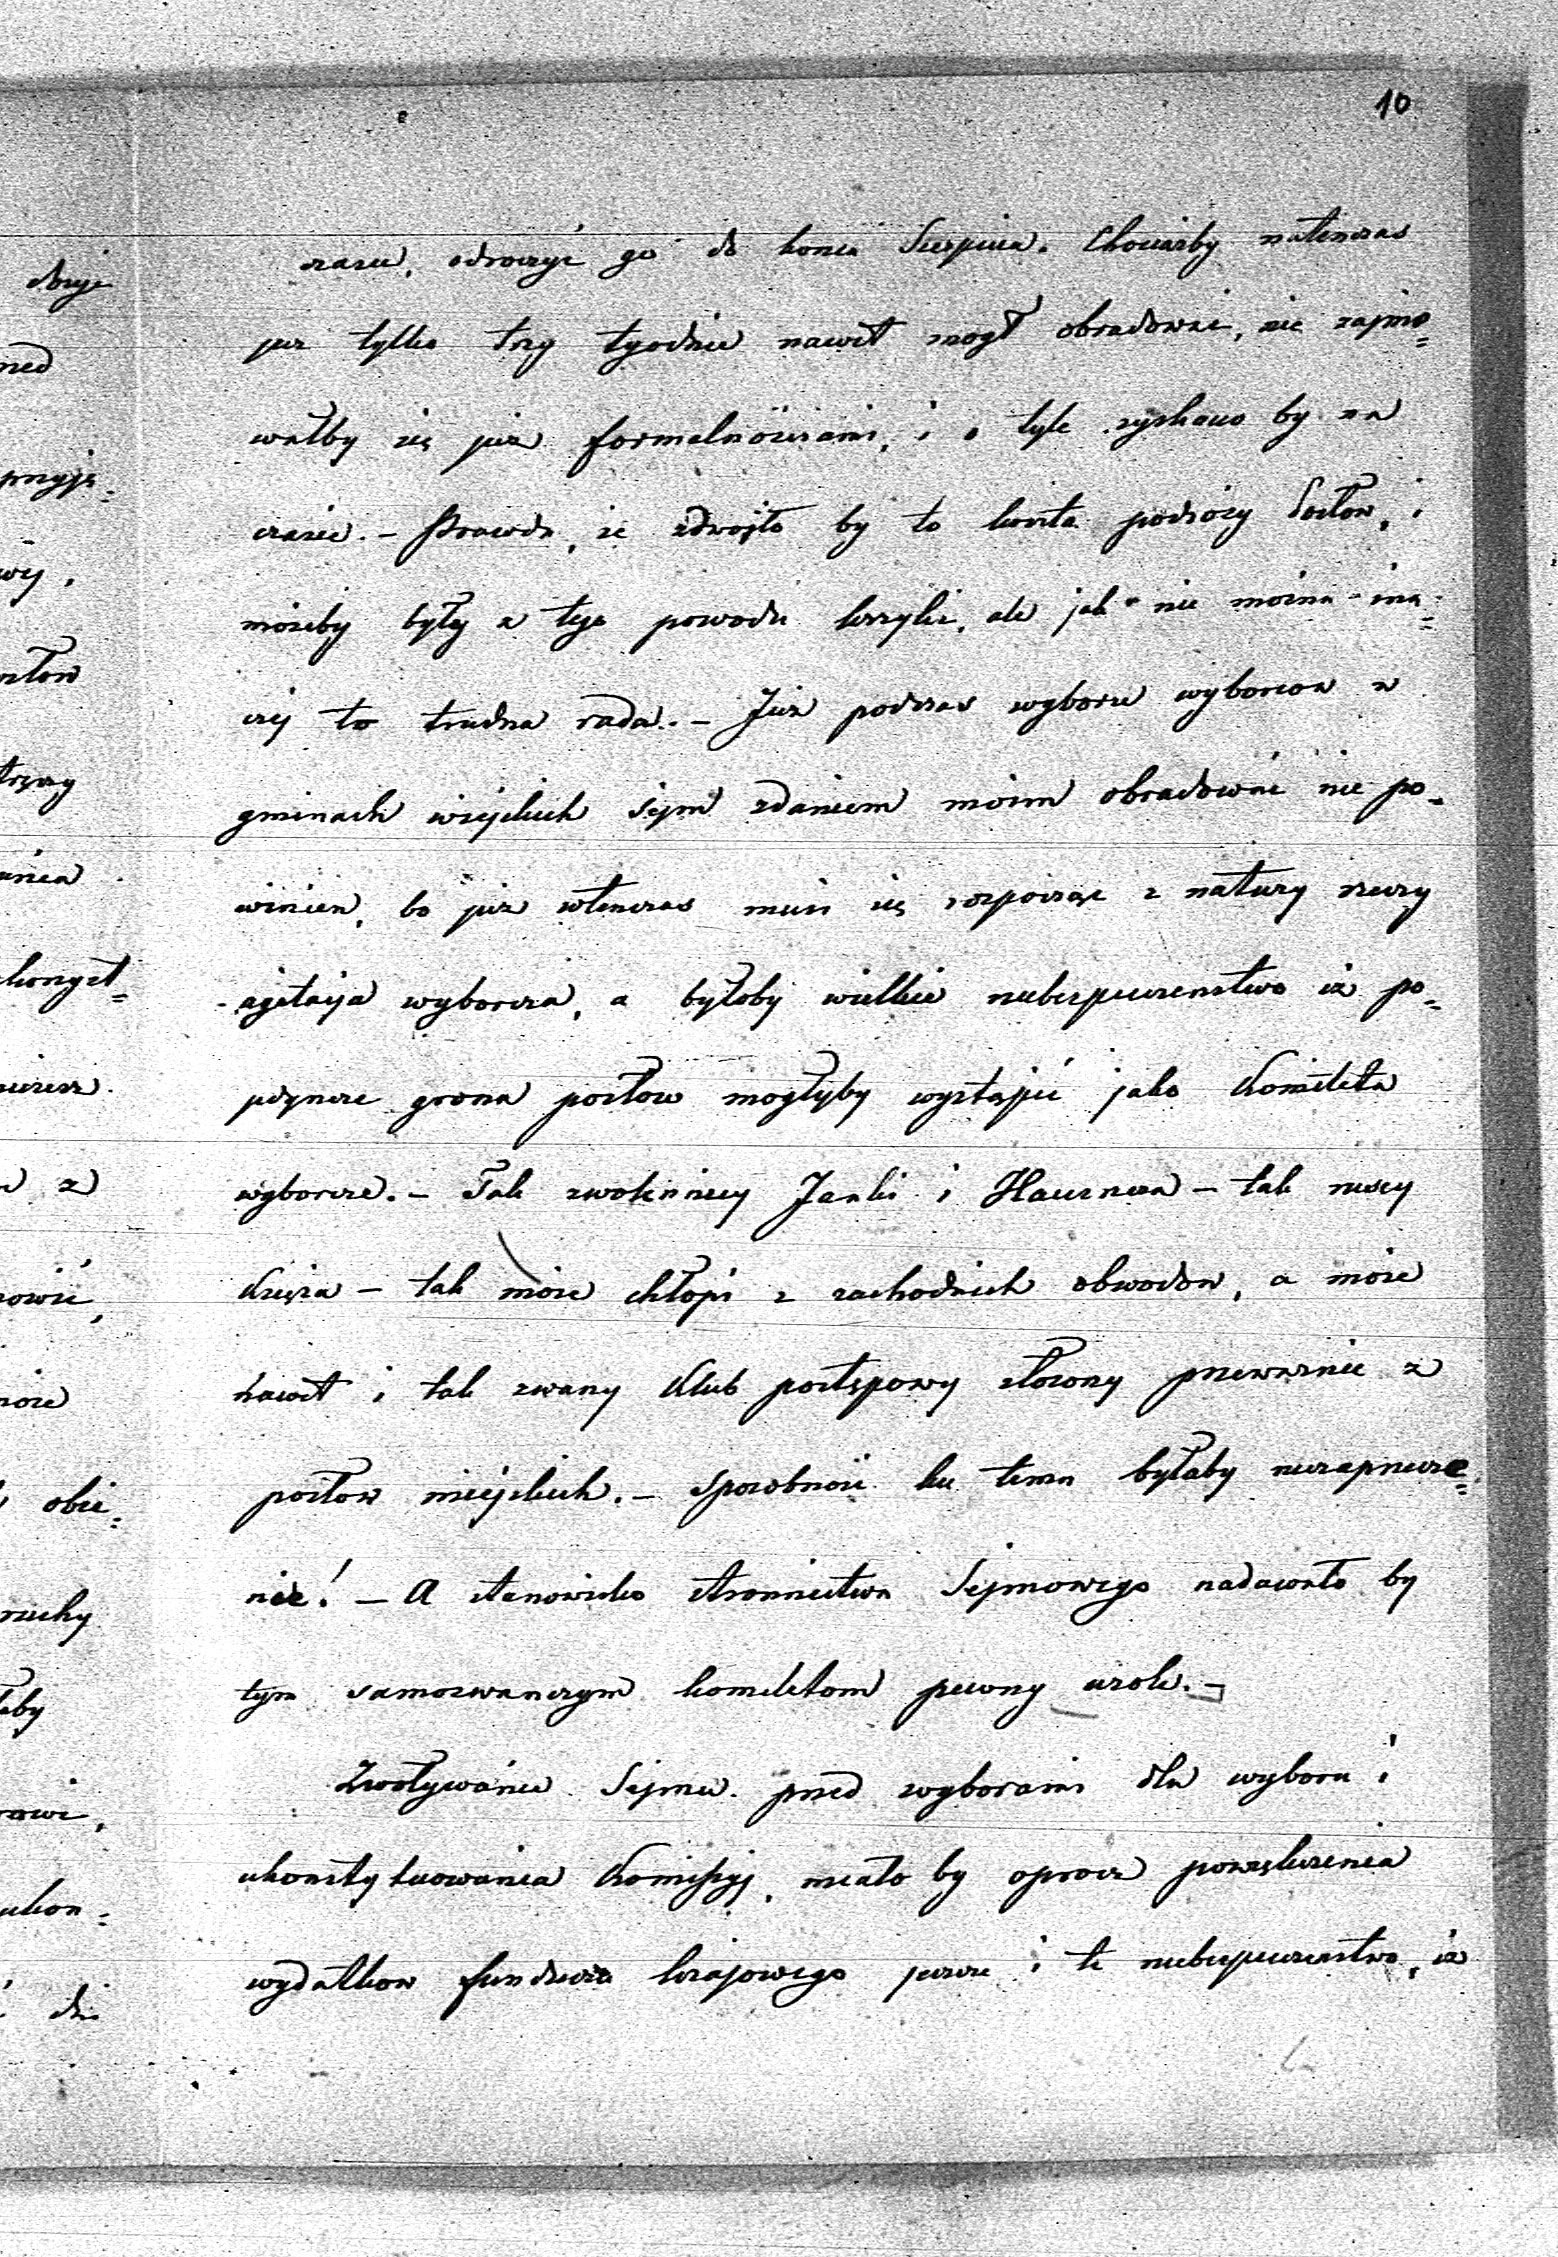 10
czasu, odroczyć go do końca Sierpnia. Chociażby natenczas
już tylko trzy tygodnie nawet mógł obradować, nie zajmo=
wałby się już formalnościami, i o tyle zyskano by na
czasie. – Prawda, że zdwoiło by to koszta podróży Posłów, i
możeby były z tego powodu krzyki, ale jak nie można ina=
czej to trudna rada. – Już podczas wyboru wyborców w
gminach wiejskich sejm zdaniem moim obradować nie po=
winien, bo już wtenczas musi się rozpocząć z natury rzeczy
agitacja wyborcza, a byłoby wielkie niebezpieczeństwo iż po=
jedyncze grona posłów mogłyby wystąpić jako Komiteta
wyborcze. – Tak zwolennicy Janki i Hausnera – tak ruscy
Księża – tak może chłopi z zachodnich obwodów, a może
nawet i tak zwany Klub postępowy złożony przeważnie z
posłów miejskich. – Sposobność ku temu byłaby niezaprzecze=
nie! – A stanowisko stronnictwa Sejmowego nadawało by
tym samozwańczym komitetom pewny urok. –
Zwoływanie Sejmu przed wyborami dla wyboru i
ukonstytuowania Komissyj, miało by oprócz powiększenia
wydatków funduszu krajowego jeszcze i te niebezpieczeństwo, iż